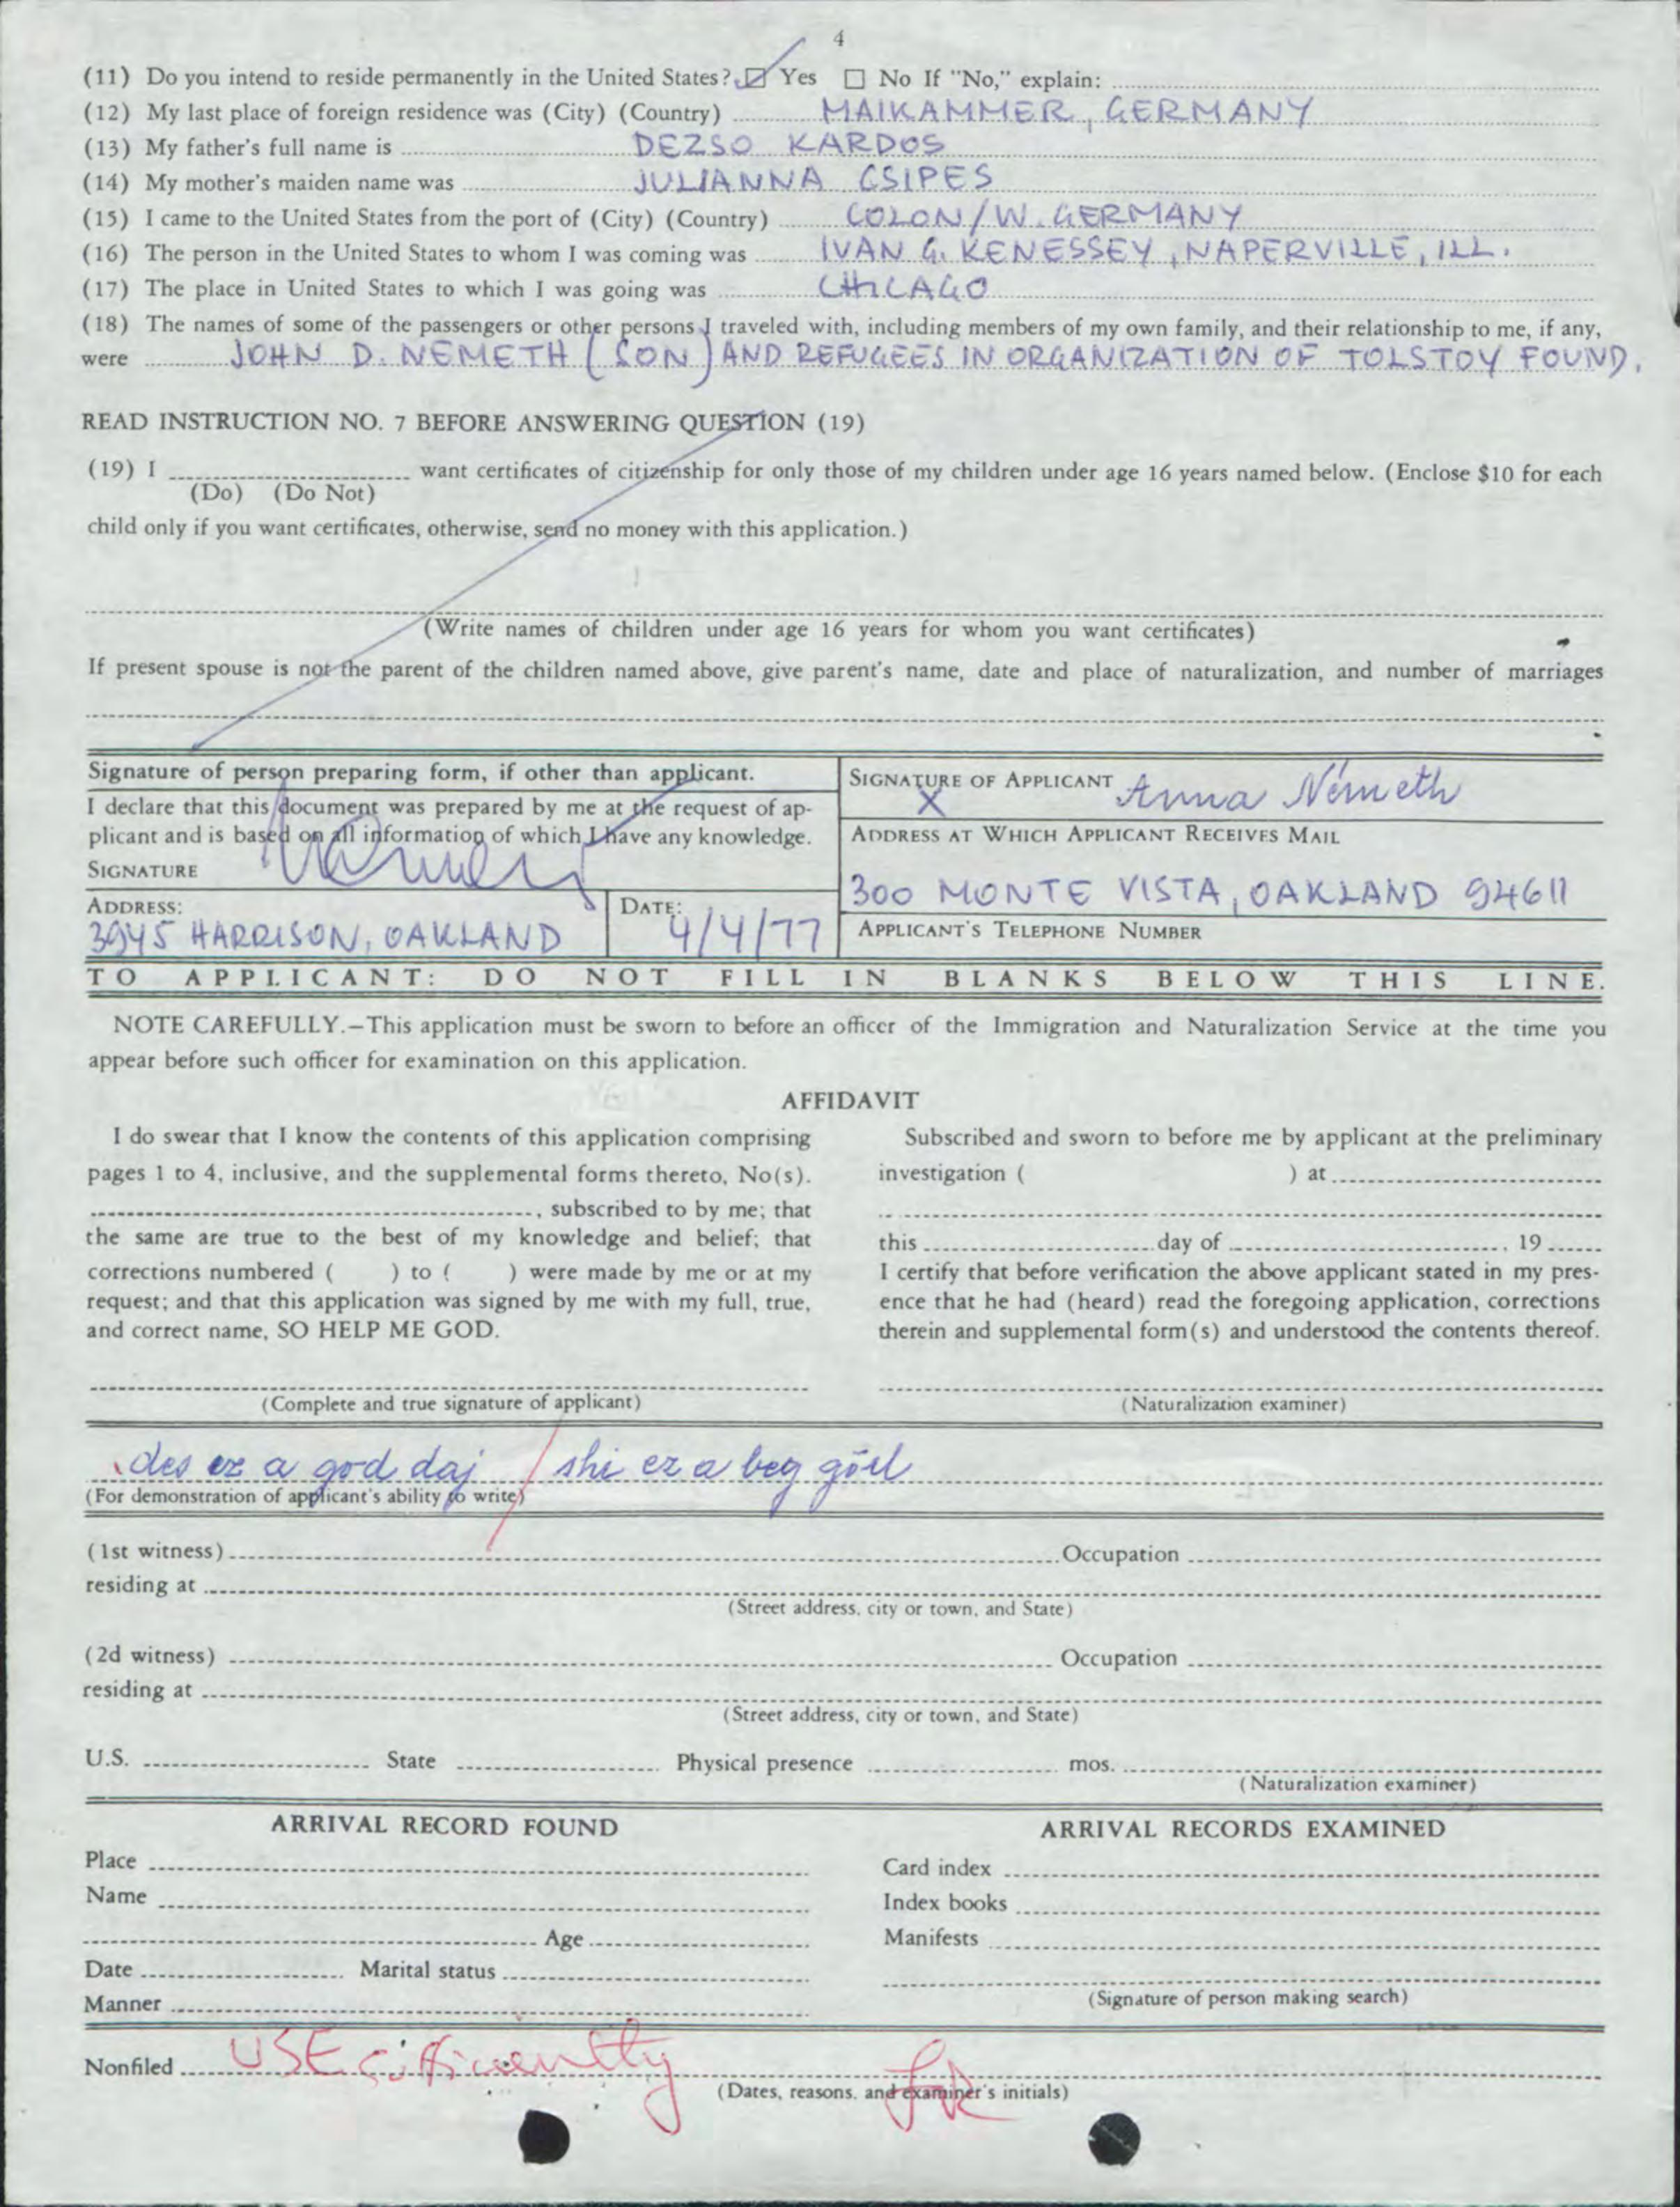 4
(11) Do you intend to reside permanently in the United States? ☑ Yes ☐ No If "No," explain:
(12) My last place of foreign residence was (City) (Country) MAIKAMMER, GERMANY
(13) My father's full name is DEZSO KARDOS
(14) My mother's maiden name was JULIANNA CSIPES
(15) I came to the United States from the port of (City) (Country) COLON/W. GERMANY
(16) The person in the United States to whom I was coming was IVAN G. KENESSEY, NAPERVILLE, ILL.
(17) The place in United States to which I was going was CHICAGO
(18) The names of some of the passengers or other persons I traveled with, including members of my own family, and their relationship to me, if any,
were JOHN D. NEMETH (SON) AND REFUGEES IN ORGANIZATION OF TOLSTOY FOUND.
READ INSTRUCTION NO. 7 BEFORE ANSWERING QUESTION (19)
(19) I want certificates of citizenship for only those of my children under age 16 years named below. (Enclose $10 for each
(Do) (Do Not)
child only if you want certificates, otherwise, send no money with this application.)
(Write names of children under age 16 years for whom you want certificates)
If present spouse is not the parent of the children named above, give parent's name, date and place of naturalization, and number of marriages
Signature of person preparing form, if other than applicant.
I declare that this document was prepared by me at the request of ap-
plicant and is based on all information of which I have any knowledge.
SIGNATURE
ADDRESS:
3945 HARRISON, OAKLAND
DATE:
4/4/77
SIGNATURE OF APPLICANT Anna Németh
X
ADDRESS AT WHICH APPLICANT RECEIVES MAIL
300 MONTE VISTA, OAKLAND 94611
APPLICANT'S TELEPHONE NUMBER
TO APPLICANT: DO NOT FILL IN BLANKS BELOW THIS LINE.
NOTE CAREFULLY.—This application must be sworn to before an officer of the Immigration and Naturalization Service at the time you
appear before such officer for examination on this application.
AFFIDAVIT
I do swear that I know the contents of this application comprising
pages 1 to 4, inclusive, and the supplemental forms thereto, No(s).
, subscribed to by me; that
the same are true to the best of my knowledge and belief; that
corrections numbered ( ) to ( ) were made by me or at my
request; and that this application was signed by me with my full, true,
and correct name, SO HELP ME GOD.
(Complete and true signature of applicant)
Subscribed and sworn to before me by applicant at the preliminary
investigation ( ) at
this day of , 19
I certify that before verification the above applicant stated in my pres-
ence that he had (heard) read the foregoing application, corrections
therein and supplemental form(s) and understood the contents thereof.
(Naturalization examiner)
des ez a god daj / shi ez a beg görl
(For demonstration of applicant's ability to write)
(1st witness) Occupation
residing at
(Street address, city or town, and State)
(2d witness) Occupation
residing at
(Street address, city or town, and State)
U.S. State Physical presence mos.
(Naturalization examiner)
ARRIVAL RECORD FOUND
Place
Name
Age
Date Marital status
Manner
ARRIVAL RECORDS EXAMINED
Card index
Index books
Manifests
(Signature of person making search)
Nonfiled
(Dates, reasons, and examiner's initials)